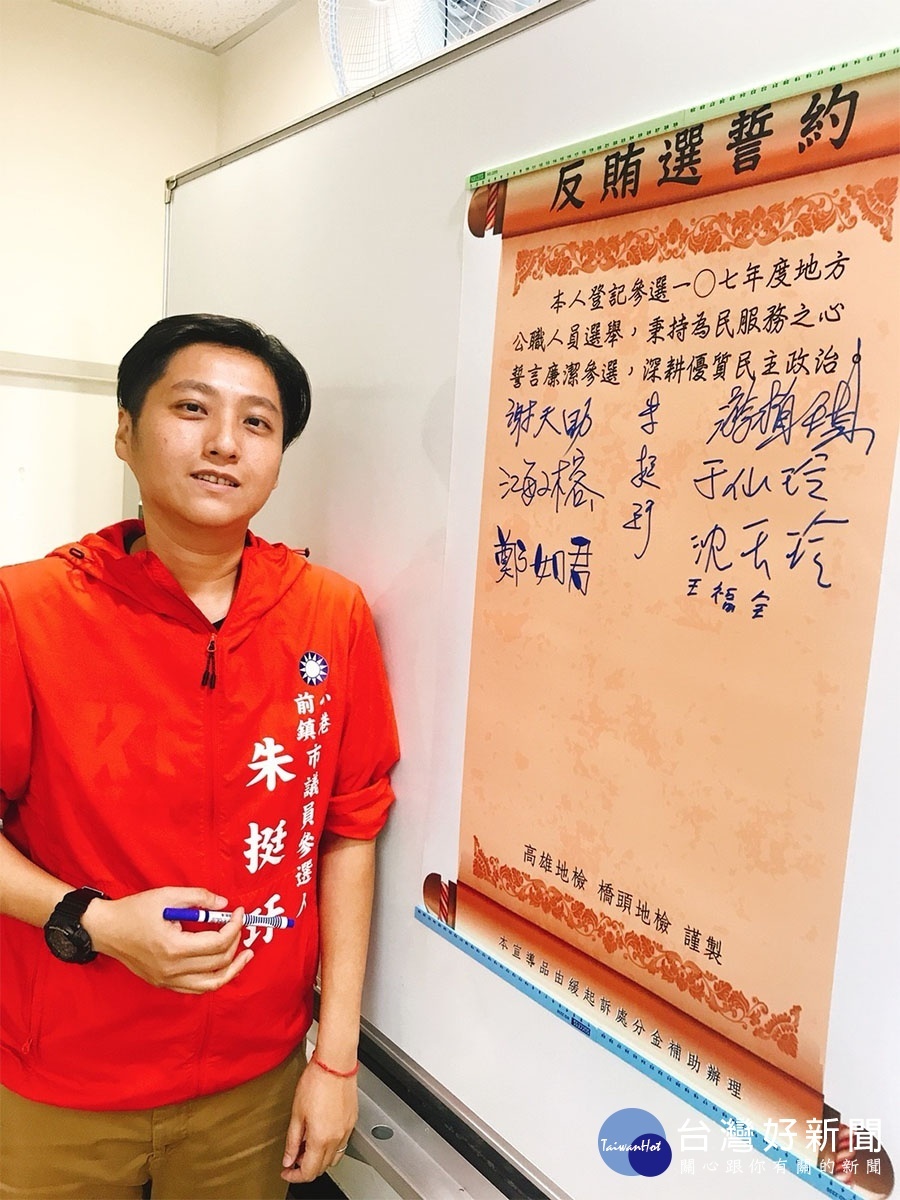 反賄選誓約
本人登記參選一〇七年度地方
公職人員選舉，秉持為民服務之心
誓言廉潔參選，深耕優質民主政治。
謝天助
海敏榕
鄭如君
于仙玲
王福全
高雄地檢 橋頭地檢 謹製
本宣導品由緩起訴處分金補助辦理
小港
前鎮市議員參選人
朱挺
TaiwanHot
台灣好新聞
關心跟你有關的新聞